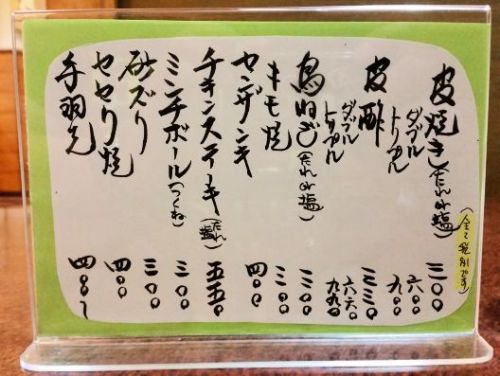 (全て税別です)
皮焼き(たれor塩) 三〇〇
ダブル 六〇〇
トリプル 九〇〇
皮酢 三三〇
ダブル 六六〇
トリプル 九九〇
鳥ねぎ(たれor塩) 三〇〇
キモ焼 三〇〇
センザンキ 四〇〇
チキンステーキ(たれ塩) 五五〇
ミンチボール(つくね) 三〇〇
砂ズリ 三〇〇
セセリ焼 四〇〇
手羽先 四〇〇〜